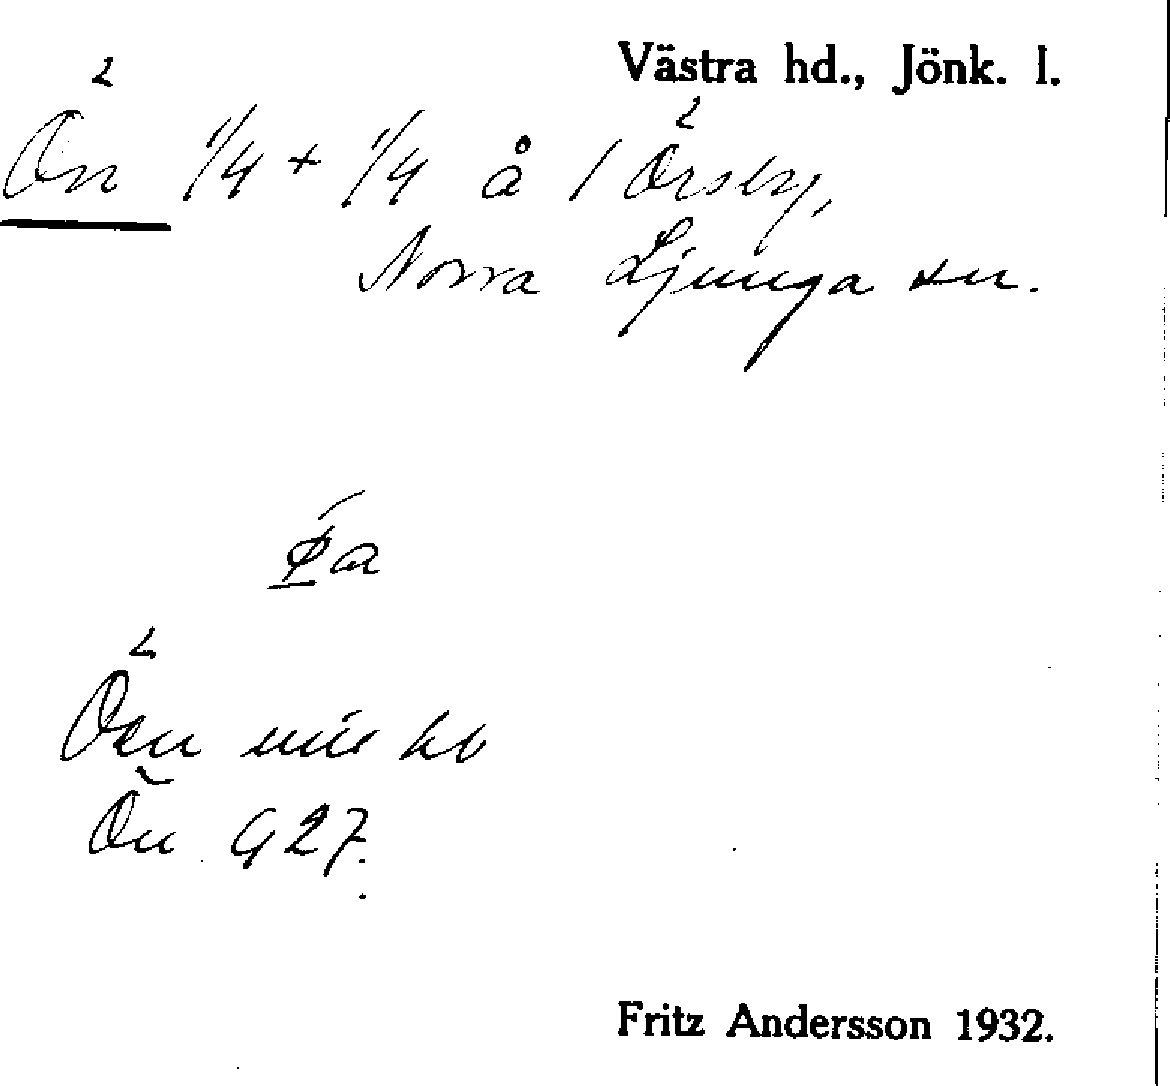 Västra hd., Jönk. l.
Ön 1/4 + 1/4 å 1 Örsby,
Norra Ljunga sn.
Öen
Ön G 27.
Fritz Andersson 1932.